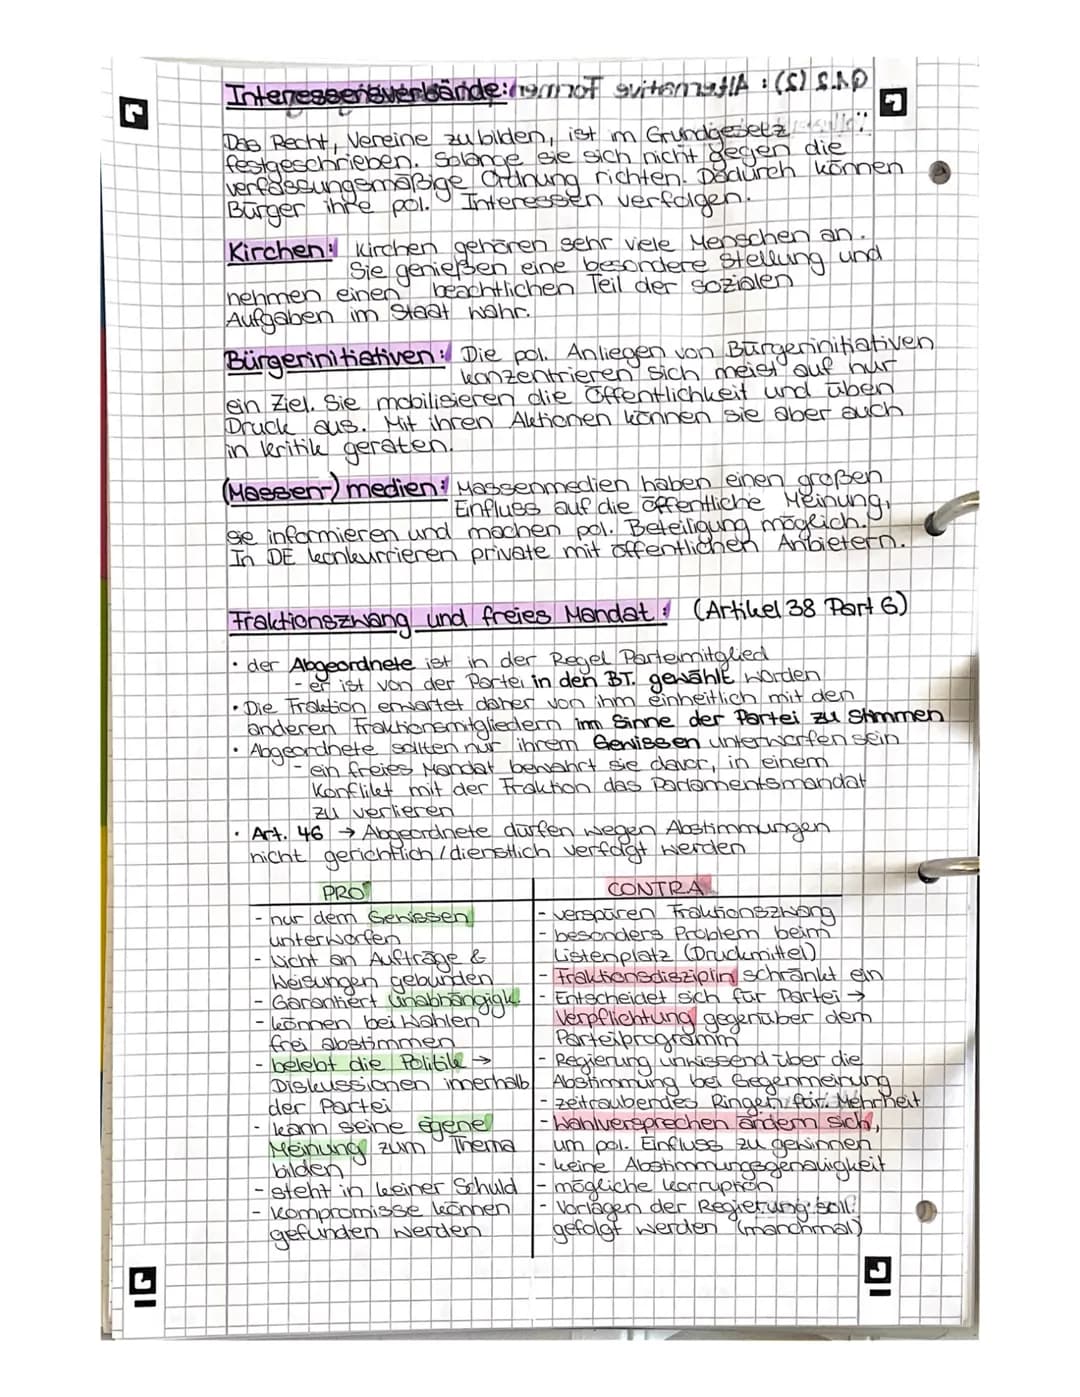 Interessensverbände:
Das Recht, Vereine zu bilden, ist im Grundgesetz
festgeschrieben. Solange sie sich nicht gegen die
verfassungsmäßige Ordnung richten. Dadurch können
Bürger ihre pol. Interessen verfolgen.
Kirchen: Kirchen gehören sehr viele Menschen an.
Sie genießen eine besondere Stellung und
nehmen einen beachtlichen Teil der sozialen
Aufgaben im Staat wahr.
Bürgerinitiativen: Die pol. Anliegen von Bürgerinitiativen
konzentrieren sich meist auf nur
ein Ziel. Sie mobilisieren die Öffentlichkeit und üben
Druck aus. Mit ihren Aktionen können sie aber auch
in Kritik geraten.
(Massen-) medien: Massenmedien haben einen großen
Einfluss auf die öffentliche Meinung,
sie informieren und machen pol. Beteiligung möglich.
In DE konkurrieren private mit öffentlichen Anbietern.
Fraktionszwang und freies Mandat: (Artikel 38 Part 6)
• der Abgeordnete ist in der Regel Parteimitglied
- er ist von der Partei in den BT. gewählt worden
• Die Fraktion erwartet daher von ihm einheitlich mit den
anderen Fraktionsmitgliedern im Sinne der Partei zu stimmen
• Abgeordnete sollten nur ihrem Gewissen unterworfen sein
- ein freies Mandat bewahrt sie davor, in einem
Konflikt mit der Fraktion das Parlamentsmandat
zu verlieren
• Art. 46 → Abgeordnete dürfen wegen Abstimmungen
nicht gerichtlich/dienstlich verfolgt werden
PRO
- nur dem Gewissen
unterworfen
- Nicht an Aufträge &
Weisungen gebunden
- Garantiert Unabhängigk.
- können bei Wahlen
frei abstimmen
- belebt die Politik →
Diskussionen innerhalb
der Partei
- kann seine eigene
Meinung zum Thema
bilden
- steht in keiner Schuld
- Kompromisse können
gefunden werden
CONTRA
- verspüren Fraktionszwang
- besonders Problem beim
Listenplatz (Druckmittel)
- Fraktionsdisziplin schränkt ein
- Entscheidet sich für Partei →
Verpflichtung gegenüber dem
Parteiprogramm
- Regierung unwissend über die
Abstimmung bei Gegenmeinung
- zeitraubendes Ringen für Mehrheit
- Wahlversprechen ändern sich,
um pol. Einfluss zu gewinnen
- keine Abstimmungsgenauigkeit
- mögliche Korruption
- Vorlagen der Regierung soll
gefolgt werden (manchmal)